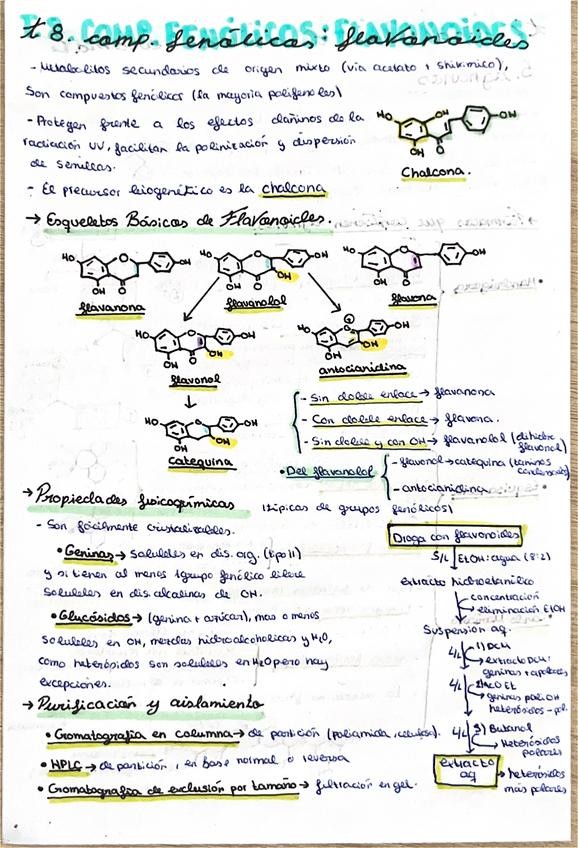 t 8. comp. fenólicos: flavonoides
- Metabolitos secundarios de origen mixto (vía acetato + shikímico),
Son compuestos fenólicos (la mayoría polifenoles)
- Protegen frente a los efectos dañinos de la
radiación UV, facilitan la polinización y dispersión
de semillas.
HO
OH
OH
OH
O
Chalcona.
- El precursor biogenético es la chalcona
→ Esqueletos Básicos de Flavonoides.
HO
O
OH
OH
O
flavanona
HO
O
OH
OH
OH
O
flavanolol
HO
O
OH
OH
O
flavona
HO
O
OH
OH
OH
O
flavonol
HO
O
OH
OH
OH
antocianidina
HO
O
OH
OH
OH
catequina
- Sin doble enlace → flavanona
- Con doble enlace → flavona.
- Sin doble y con OH → flavanolol (dihidro
flavonol)
• Del flavanolol
- flavonol → catequina (taninos
condensados)
- antocianidina
→ Propiedades fisicoquímicas (típicas de grupos fenólicos)
- Son fácilmente cristalizables.
• Geninas → solubles en dis. org. (tipo II)
y si tienen al menos 1 grupo fenólico libre
solubles en dis. alcalinas de OH.
• Glucósidos → (genina + azúcar), mas o menos
solubles en OH, mezclas hidroalcoholicas y H2O,
como heterósidos son solubles en H2O pero hay
excepciones.
→ Purificación y aislamiento
• Cromatografía en columna → de partición (poliamida, celulosa).
• HPLC → de partición, en base normal o reversa
• Cromatografía de exclusión por tamaño → filtración en gel.
Droga con flavonoides
S/L EtOH: agua (8:2)
extracto hidroetanólico
concentración
eliminación EtOH
Suspensión aq.
L/L 1) DCM
→ extracto DCM:
geninas + apolares
L/L 2)
geninas poliOH
heterósidos - pol.
L/L 3) Butanol
→ Heterósidos
polares
extracto
aq → heterósidos
más polares